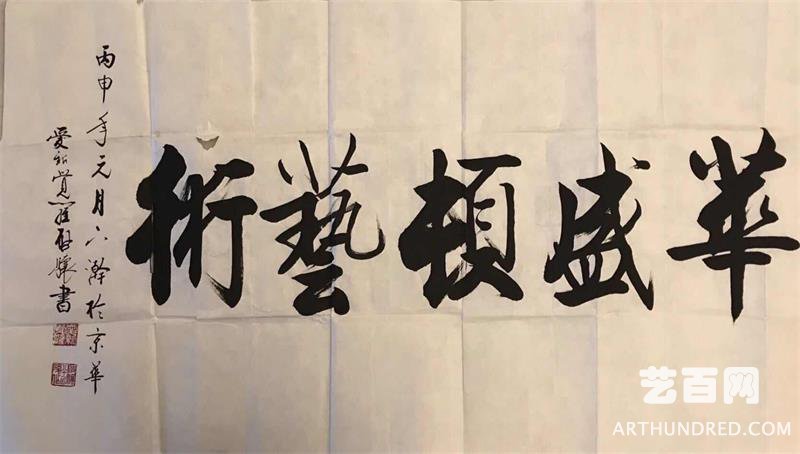 華盛頓藝術
丙申年元月下澣於京華
愛新覺羅啟驤書
艺百网
ARTHUNDRED.COM